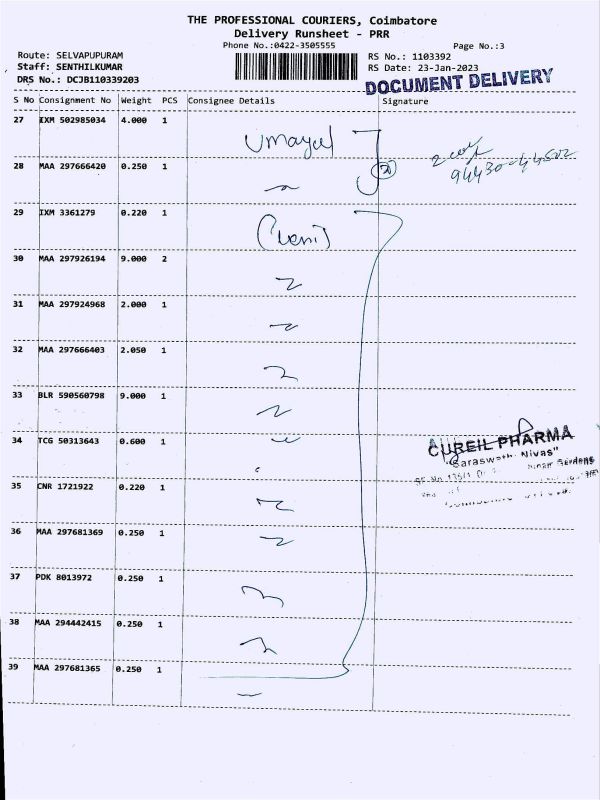 THE PROFESSIONAL COURIERS, Coimbatore
Delivery Runsheet - PRR
Phone No.:0422-3505555
Page No.:3
Route: SELVAPUPURAM
RS No.: 1103392
Staff: SENTHILKUMAR
RS Date: 23-Jan-2023
DRS No.: DCJB110339203
DOCUMENT DELIVERY
S No Consignment No Weight PCS Consignee Details Signature
27 IXM 502985034 4.000 1
28 MAA 297666420 0.250 1
29 IXM 3361279 0.220 1
30 MAA 297926194 9.000 2
31 MAA 297924968 2.000 1
32 MAA 297666403 2.050 1
33 BLR 590560798 9.000 1
34 TCG 50313643 0.600 1
CUREIL PHARMA
"Saraswathi Nivas"
35 CNR 1721922 0.220 1
36 MAA 297681369 0.250 1
37 PDK 8013972 0.250 1
38 MAA 294442415 0.250 1
39 MAA 297681365 0.250 1